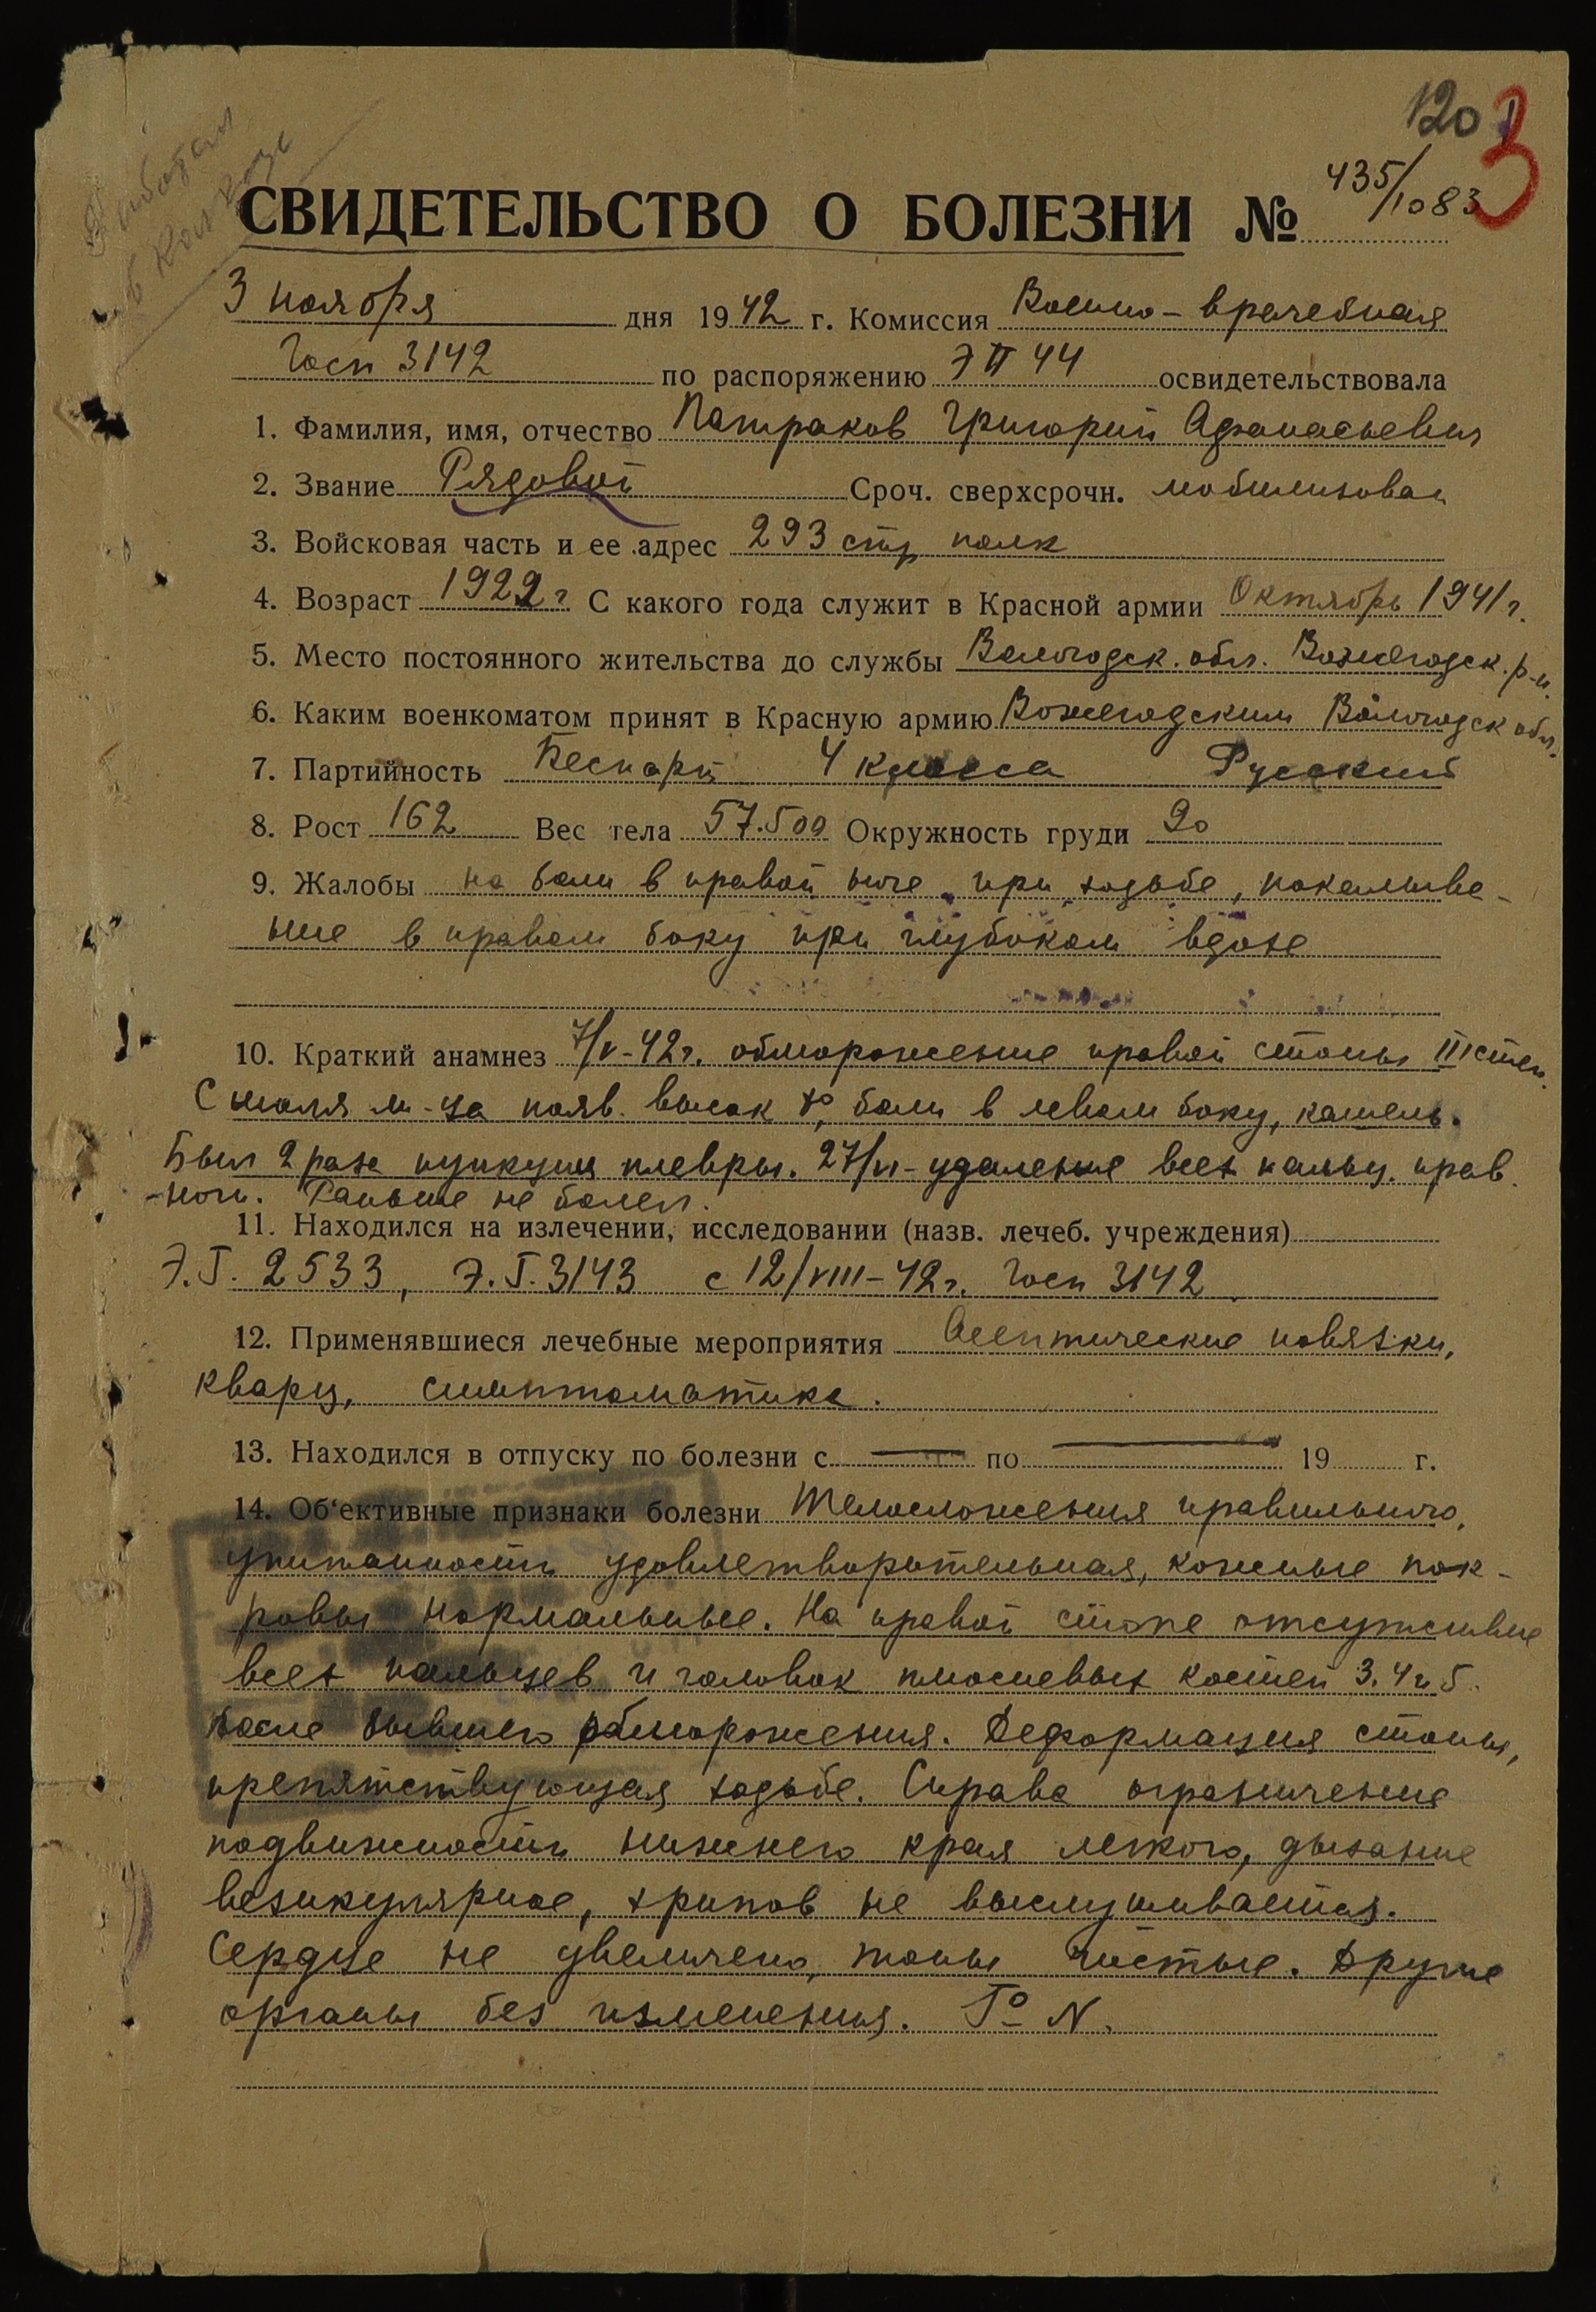 120
3
Работал
в колхозе
435/1083
СВИДЕТЕЛЬСТВО О БОЛЕЗНИ №
3 ноября дня 1942 г. Комиссия Военно-врачебная
Госп 3142 по распоряжению ЭП 44 освидетельствовала
1. Фамилия, имя, отчество Патраков Григорий Афанасьевич
2. Звание Рядовой Сроч. сверхсрочн. мобилизован
3. Войсковая часть и ее адрес 293 стр полк
4. Возраст 1922 г. С какого года служит в Красной армии Октябрь 1941 г.
5. Место постоянного жительства до службы Вологодск. обл. Вожегодск. р-н.
6. Каким военкоматом принят в Красную армию Вожегодским Вологодск обл.
7. Партийность Беспарт 4 класса Русский
8. Рост 162 Вес тела 57.500 Окружность груди 90
9. Жалобы на боли в правой ноге при ходьбе, покалыва-
ние в правом боку при глубоком вдохе
10. Краткий анамнез 7/V-42 г. обморожение правой стопы III степ.
С июля м-ца появ. высок t°, боли в левом боку, кашель.
Был 2 раза пункция плевры. 27/VI-удаление всех пальц. прав.
ноги. Раньше не болел.
11. Находился на излечении, исследовании (назв. лечеб. учреждения)
Э.Г. 2533, Э.Г. 3143 с 12/VIII-42 г. Госп 3142
12. Применявшиеся лечебные мероприятия Асептические повязки,
кварц, симптоматика.
13. Находился в отпуску по болезни с — по — 19 г.
14. Об'ективные признаки болезни Телосложения правильного,
упитанность удовлетворительная, кожные пок-
ровы нормальные. На правой стопе отсутствие
всех пальцев и головок плюсневых костей 3. 4 и 5
после бывшего обморожения. Деформация стопы,
препятствующая ходьбе. Справа ограничение
подвижности нижнего края легкого, дыхание
везикулярное, хрипов не выслушивается.
Сердце не увеличено, тоны чистые. Другие
органы без изменения. Т° N.